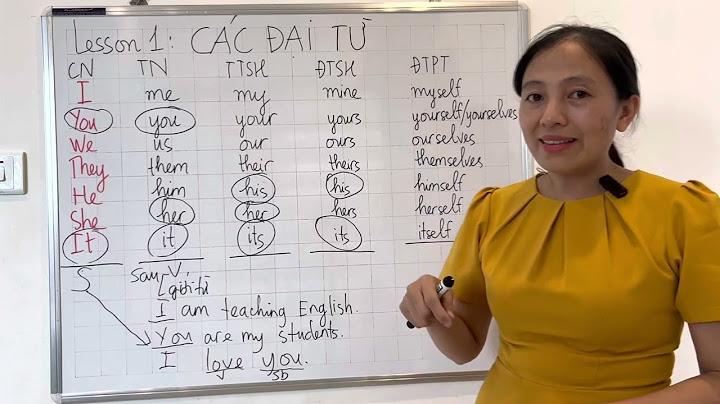 Lesson 1: CÁC ĐẠI TỪ
CN TN TTSH ĐTSH ĐTPT
I me my mine myself
You you your yours yourself/yourselves
We us our ours ourselves
They them their theirs themselves
He him his his himself
She her her hers herself
It it its its itself
S sau V,
giới từ
I am teaching English.
You are my students.
I love you.
V sb